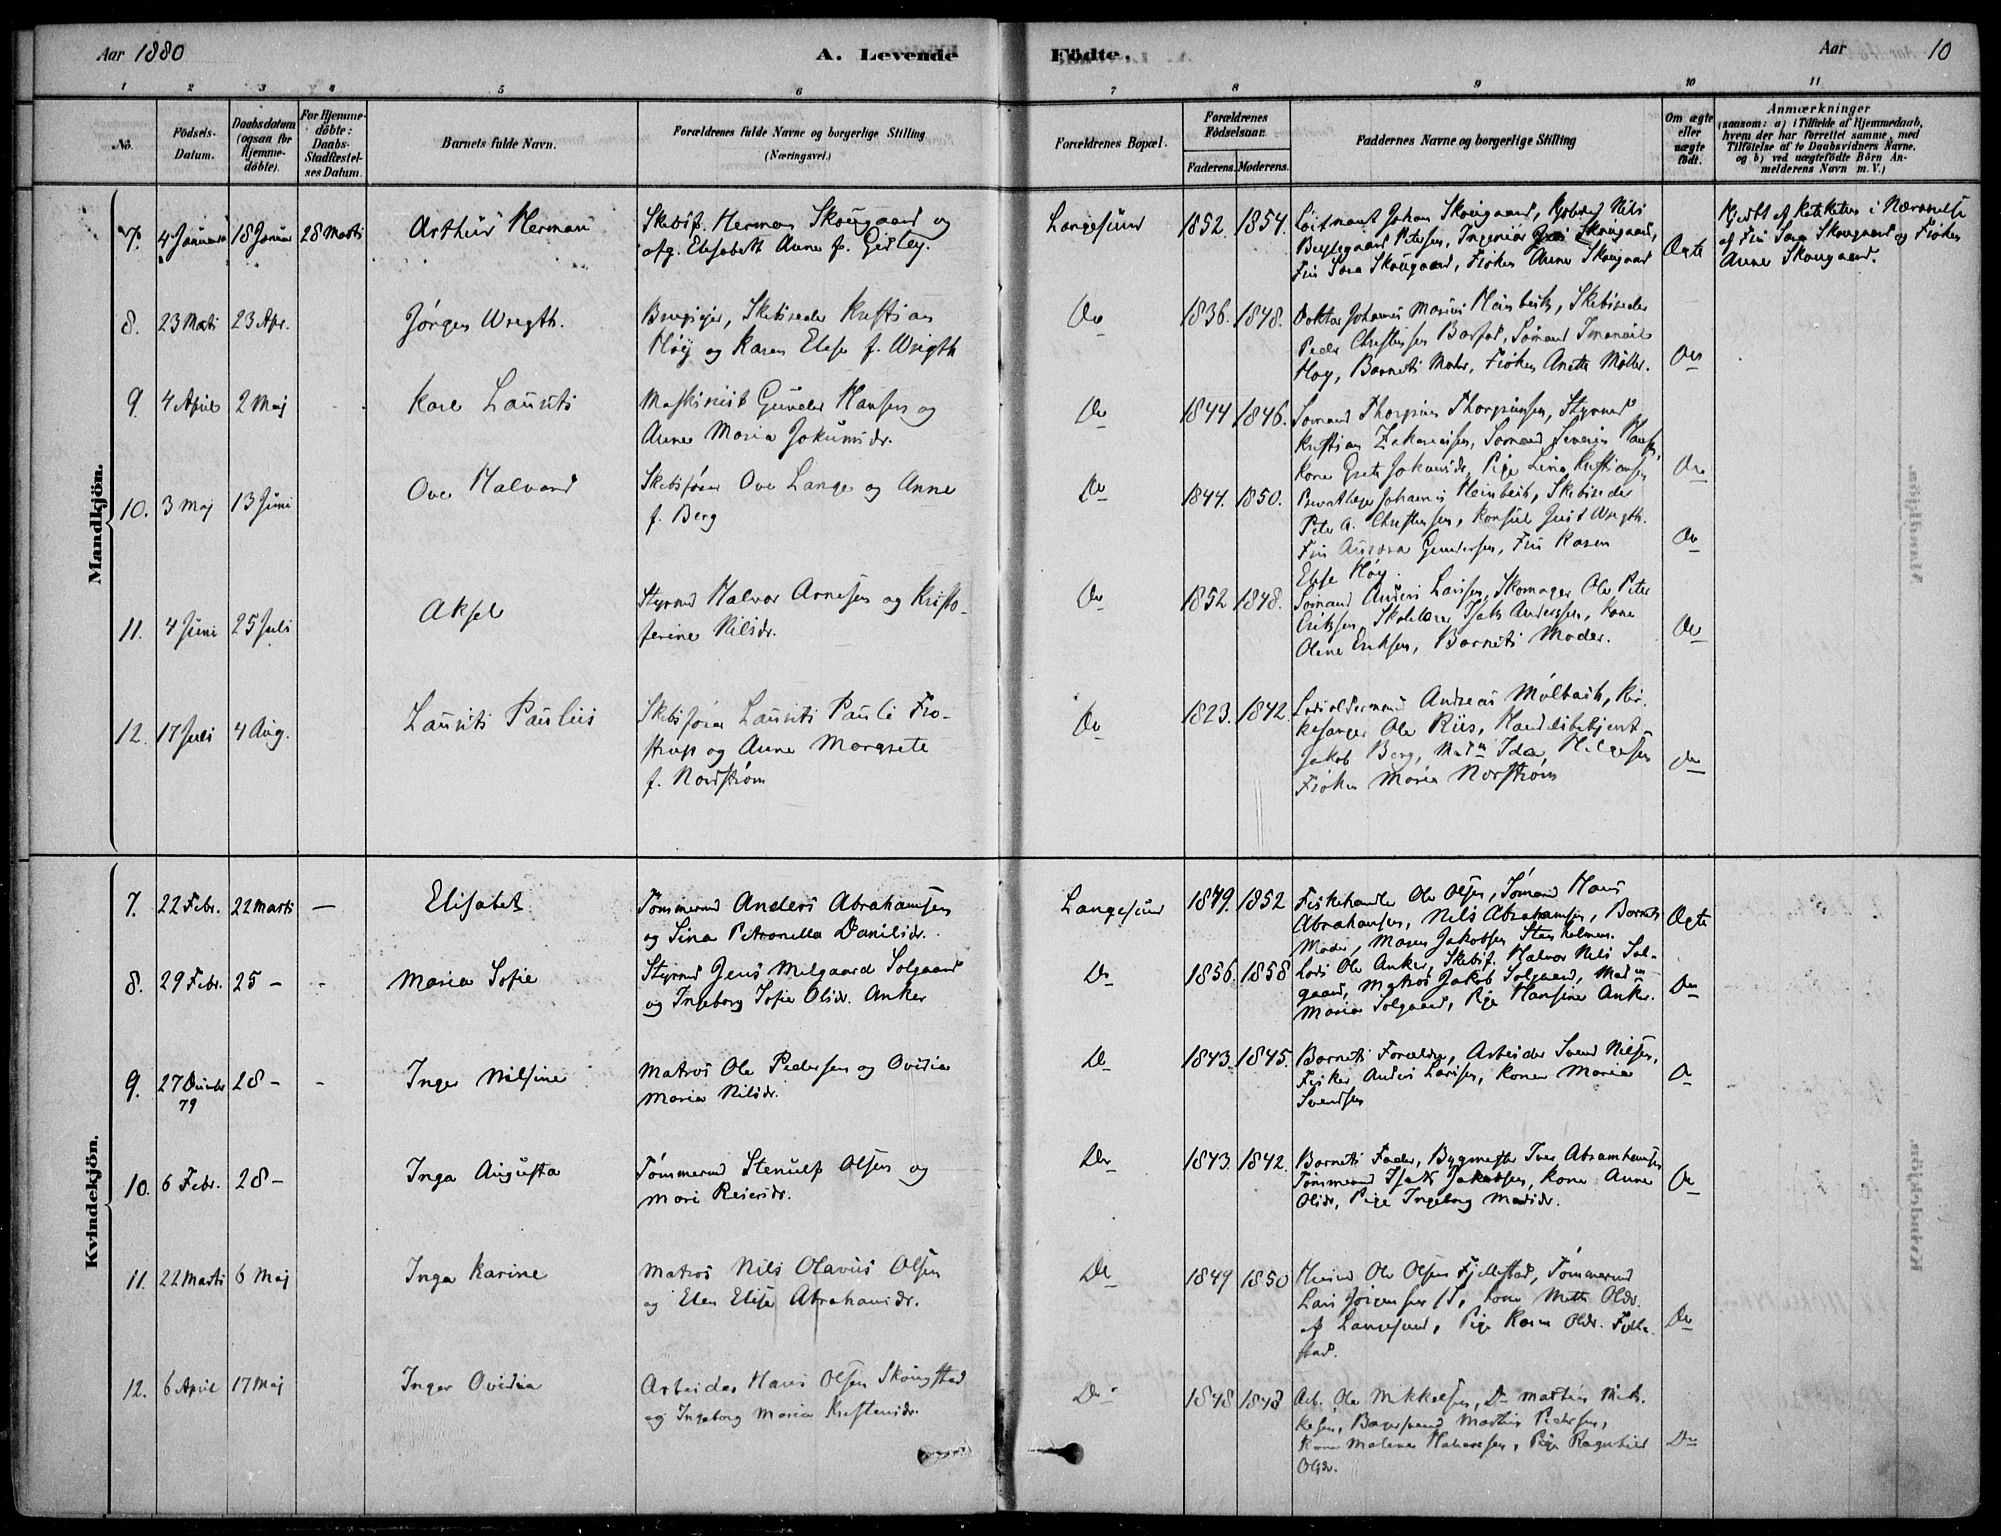 Aar 1880
A. Levende
Födte.
Aar
10
1 2 3 4 5 6 7 8 9 10 11
No.
Födsels-Datum.
Daabsdatum (ogsaa for Hjemmedöbte).
For Hjemmedöbte: Daabs-Stadfæstelses Datum.
Barnets fulde Navn.
Forældrenes fulde Navne og borgerlige Stilling
(Næringsvei.)
Forældrenes Bopæl.
Forældrenes Födselsaar.
Faderens. Moderens.
Faddernes Navne og borgerlige Stilling
Om ægte eller uægte födt.
Anmærkninger
(saasom: a) i Tilfælde af Hjemmedaab, hvem der har forrettet samme, med Tilföielse af to Daabsvidners Navne, og b) ved uægtefödte Börn Anmelderens Navn m. V.)
Mandkjön.
7. 4 Januar 18 Januar 28 Marts Arthur Herman
Skibsf. Herman Skougaard og
Elisabeth Anne f.
Langesund 1852. 1854.
Løitnant Johan Skougaard, Nils
Petersen, Ingeniør Skougaard,
Fru Sara Skougaard, Frøken Anne Skougaard
Ægte
i Nærværelse
af Fru Sara Skougaard og Frøken
Anne Skougaard.
8. 23 Marts 23 Apr. Jørgen Wregth.
Skibsreder Kristian
Høy og Karen Elise f. Wregth
Do 1836. 1848.
Doktor Johannes Marius Heinbeck, Skibsreder
Peder Christensen Sømand
Høy, Barnets Moder, Frøken Anette Møller.
Do
9. 4 April 2 Maj Karl Laurits
Maskinist Gunder Hansen og
Anne Maria Jokumsdr.
Do 1844 1846.
Sømand Thorgrim Thorgrimsen, Styrmd
Kristian Zakariasen, Sømand Severin Hans.
Kone Grete Johansdr, Pige Lina Kristiansen
Do
10. 3 Maj 13 Juni Ove Halvard
Skibsfører Ove Lange og Anne
f. Berg
Do 1844. 1850.
Privatlæge Johannes Heinbeck, Skibsreder
Peter A. Christensen, Konsul Just Wregth.
Fru Aurora Gundersen, Fru Karen
Elise Høy.
Do
11. 4 Juni 25 Juli Aksel
Styrmd Halvor Arnesen og Kristo-
ferine Nilsdr.
Do 1852 1848.
Sømand Anders Larsen, Skomager Ole Peter
Eriksen, Skolelærer Isak Andersen, Kone
Olene Eriksen, Barnets Moder.
Do
12. 17 Juli 4 Aug. Laurits Paulus
Skibsfører Laurits Pauli Fro-
strup og Anne Margrete
f. Nordstrøm
Do 1823. 1842.
Lodsoldermand Andreas Mølbach, Kir-
kesanger Ole Riis, Handelsbetjent
Jakob Berg, Madm Ida Helgesen
Frøken Maria Norstrøm
Do
Kvindekjön.
7. 22 Febr. 22 Marts — Elisabet
Tømmermd Anders Abrahamsen
og Sina Petronella Danilsdr.
Langesund 1849. 1852
Fiskehandler Ole Olsen, Sømand Hans
Abrahamsen, Nils Abrahamsen, Barnets
Moder, Maren Jakobsen Stenholmen.
Ægte
8. 29 Febr. 25 - - Maria Sofie
Styrmd Jens Melgaard Solgaard
og Ingeborg Sofie Olsdr. Anker
Do 1856. 1858
Lods Ole Anker, Skibsf. Halvor Nils Sol-
gaard, Matros Jakob Solgaard, Madm
Maria Solgaard, Pige Hansine Anker.
Do
9. 27 Decbr 79 28 - - Inger Nilsine
Matros Ole Pedersen og Ovidia
Maria Nilsdr.
Do 1843. 1845.
Barnets Forældre, Arbeider Svend Nilsen,
Fisker Anders Larsen, Kone Maria
Svendsen
Do
10. 6 Febr. 28 - Inga Augusta
Tømmermd Stenulf Olsen og
Mari Reiersdr.
Do 1843. 1842.
Barnets Fader, Bygmester Iver Abrahamsen
Tømmermd Isak Jakobsen, Kone Anne
Olsdr, Pige Ingeborg Madsdr.
Do
11. 22 Marts 6 Maj Inga Karine
Matros Nils Olavus Olsen
og Elen Elise Abrahamsdr.
Do 1849 1850
Ole Olsen Fjellestad, Tømmermd
Lars Jørgensen, Kone Mette Olsdr.
af Langesund, Pige Karen Olsdr. Fjelle-
stad.
Do
12. 6 April 17 Maj Inger Ovidia
Arbeider Hans Olsen Skougstad
og Ingeborg Maria Kristensdr.
Do 1848 1843
Arb. Ole Mikkelsen, Do Mathias Mik-
kelsen, Bagersvend Mathias Pedersen,
Kone Malene Halvorsen, Pige Ragnhild
Olsdr.
Do